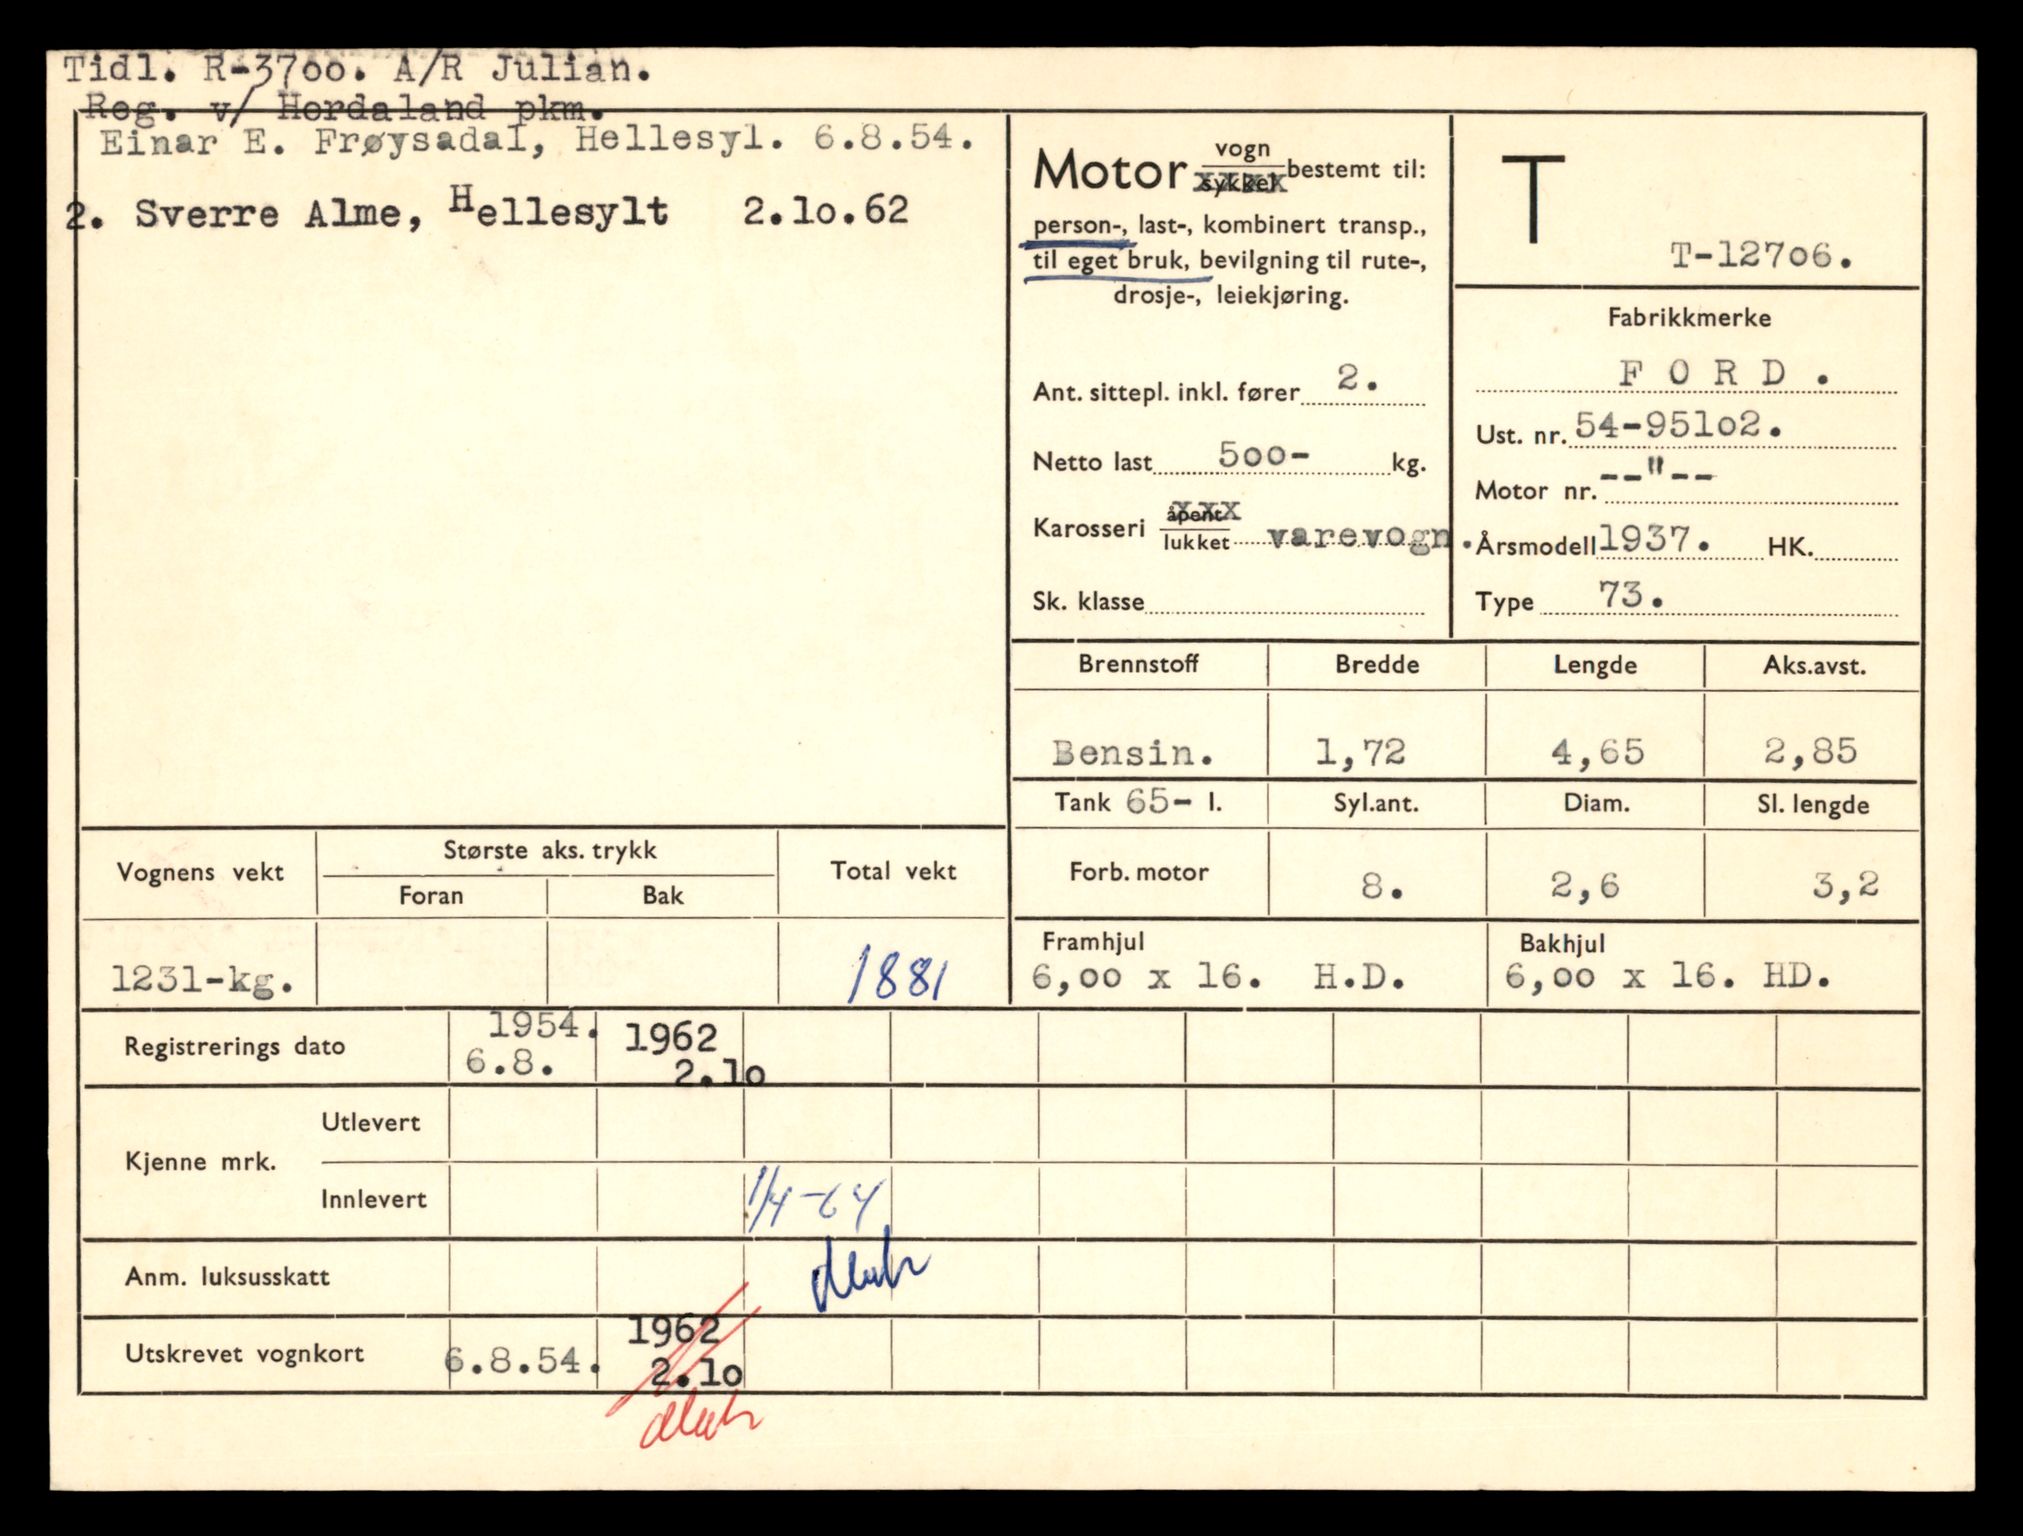 Tidl. R-3700. A/R Julian.
Reg. v/ Hordaland pkm.
Einar E. Frøysadal, Hellesyl. 6.8.54.
2. Sverre Alme, Hellesylt 2.lo.62
Motor vogn
sykkel bestemt til:
person-, last-, kombinert transp.,
til eget bruk, bevilgning til rute-,
drosje-, leiekjøring.
Ant. sittepl. inkl. fører 2.
Netto last 5oo- kg.
Karosseri åpent xxx
lukket varevogn.
Sk. klasse
T
T-127o6.
Fabrikkmerke
F O R D .
Ust. nr. 54-951o2.
Motor nr. --"--
Årsmodell 1937. HK.
Type 73.
Brennstoff Bredde Lengde Aks.avst.
Bensin. 1,72 4,65 2,85
Tank 65- l. Syl.ant. Diam. Sl. lengde
Forb. motor 8. 2,6 3,2
Framhjul Bakhjul
6,oo x 16. H.D. 6,oo x 16. HD.
Vognens vekt Største aks. trykk Total vekt
Foran Bak
1231-kg. 1881
Registrerings dato 1954. 1962
6.8. 2.lo
Kjenne mrk. Utlevert
Innlevert 1/4-64
Anm. luksusskatt
Utskrevet vognkort 6.8.54. 1962
2.lo